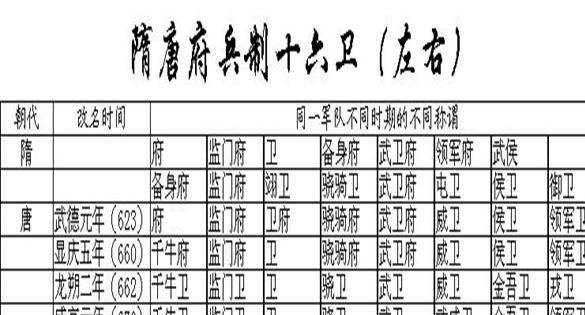 隋唐府兵制十六卫（左右）
朝代 改名时间 同一军队不同时期的不同称谓
隋 府 监门府 卫 备身府 武卫府 领军府 武侯
备身府 监门府 翊卫 骁骑卫 武卫府 屯卫 侯卫 御卫
唐 武德元年（623） 府 监门府 卫府 骁骑府 武卫府 威卫 侯卫 领军卫
显庆五年（660） 千牛府 监门府 卫 骁骑府 武卫府 威卫 侯卫 领军卫
龙朔二年（662） 千牛卫 监门卫 卫 骁卫 武卫 威卫 金吾卫 戎卫